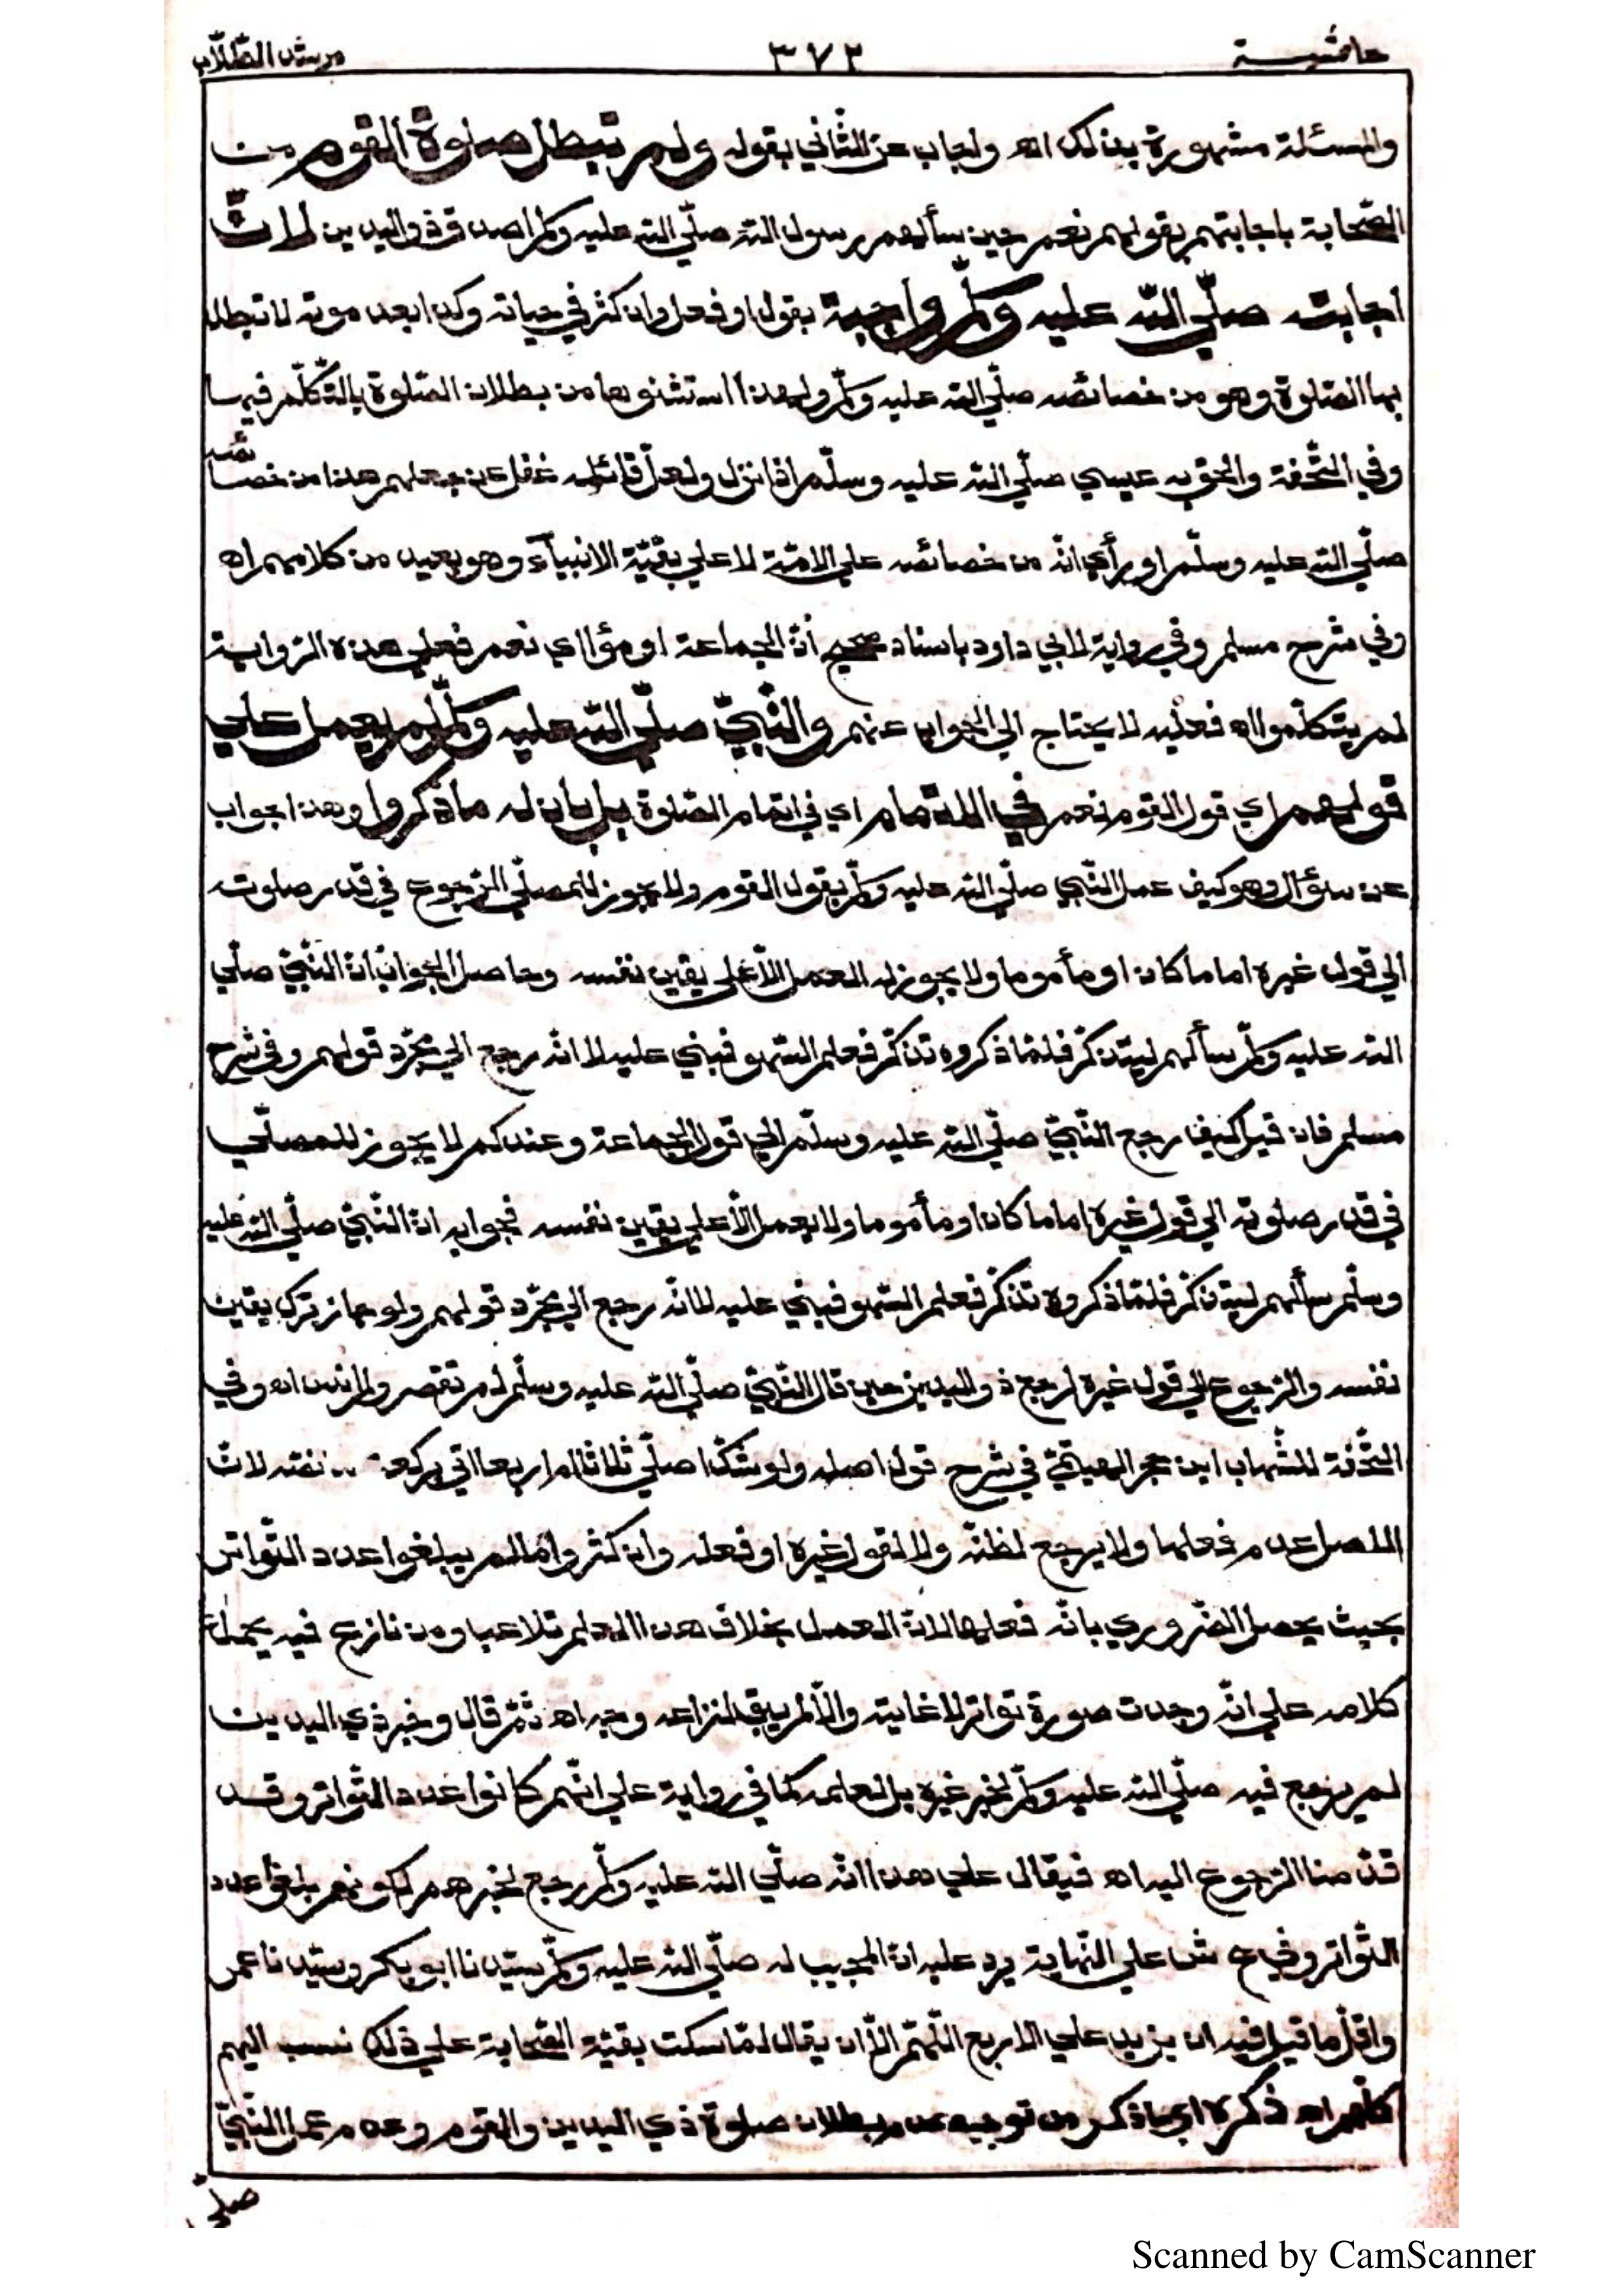 حاشية ٣٧٢ مرشد الطّلّاب
والمسئلة مشهورة بذلك اه واجاب عن الثّاني بقوله ولم تبطل صلوة القوم من
الصّحابة باجابتهم بقولهم نعم حين سألهم رسول اللّه صلّي اللّه عليه وسلّم اصدق ذو اليدين لانّ
اجابته صلّي اللّه عليه وسلّم واجبة بقول او فعل وان كثر في حياته وكذا بعد موته لا تبطل
بها الصّلوة وهو من خصائصه صلّي اللّه عليه وسلّم ولهذا استثنوها من بطلان الصّلوة بالتّكلّم فيها
وفي التّحفة والحق به عيسي صلّي اللّه عليه وسلّم اذا نزل ولعلّ قائله غفل عن جعلهم هذا من خصائصه
صلّي اللّه عليه وسلّم او رأي انّه من خصائصه علي الامّة لا علي بقيّة الانبيآء وهو بعيد من كلامهم اه
وفي شرح مسلم وفي رواية لابي داود باسناد صحيح أنّ الجماعة اومؤا اي نعم فعلي هذه الرّواية
لم يتكلّموا اه فعليه لا يحتاج الي الجواب عنهم والنّبيّ صلّي اللّه عليه وسلّم لم يعمل علي
قولهم اي قول القوم نعم في الاتمام اي في اتمام الصّلوة بل بان له ما ذكروا وهذا جواب
عن سؤال وهو كيف عمل النّبي صلّي اللّه عليه وسلّم بقول القوم ولا يجوز للمصلّي الرّجوع في قدر صلوته
الي قول غيره اماما كان او مأموما ولا يجوز له العمل الّا علي يقين نفسه وحاصل الجواب انّ النّبيّ صلّي
اللّه عليه وسلّم سألهم ليتذكّر فلمّا ذكروه تذكّر فعلم السّهو فبني عليه لا انّه رجع الي مجرّد قولهم وفي شرح
مسلم فان قيل كيف رجع النّبيّ صلّي اللّه عليه وسلّم الي قول الجماعة وعندكم لا يجوز للمصلّي
في قدر صلوته الي قول غيره اماما كان او مأموما ولا يعمل الّا علي يقين نفسه فجوابه انّ النّبيّ صلّي اللّه عليه
وسلّم سألهم ليتذكّر فلمّا ذكروه تذكّر فعلم السّهو فبني عليه لا انّه رجع الي مجرّد قولهم ولو جاز ترك يقين
نفسه والرّجوع الي قول غيره لرجع ذو اليدين حين قال النّبيّ صلّي اللّه عليه وسلّم لم تقصر ولم انس اه وفي
التّحفة للشّهاب ابن حجر الهيتميّ في شرح قول اصله ولو شكّ اصلّي ثلاثا ام اربعا اتي بركعة لانّ
الاصل عدم فعلها ولا يرجع لظنّه ولا لقول غيره او فعله وان كثر وا مالم يبلغوا عدد التّواتر
بحيث يحصل الضّروري بانّه فعلها لانّ العمل بخلاف هذا العلم تلاعب ومن نازع فيه يحمل
كلامه علي انّه وجدت صورة تواتر لا غايته والّا لم يبق لنزاعه وجه اه ثمّ قال وخبر ذي اليدين
لم يرجع فيه صلّي اللّه عليه وسلّم لخبر غيره بل لعلمه كما في رواية علي انّهم كانوا عدد التّواتر وقد
قدّمنا الرّجوع اليه اه فيقال علي هذا انّه صلّي اللّه عليه وسلّم رجع لخبرهم لكونهم بلغوا عدد
التّواتر وفي ع ش علي النّهاية يرد عليه انّ المجيب له صلّي اللّه عليه وسلّم سيّدنا ابو بكر وسيّدنا عمر
واقلّ ما قيل فيه ان يزيد علي الاربع اللّهمّ الّا ان يقال لمّا سكت بقيّة الصّحابة علي ذلك نسب اليهم
كلّهم اه ذكره اي ما ذكر من توجيه عدم بطلان صلوة ذي اليدين والقوم وعدم عمل النّبيّ
صلّي
Scanned by CamScanner